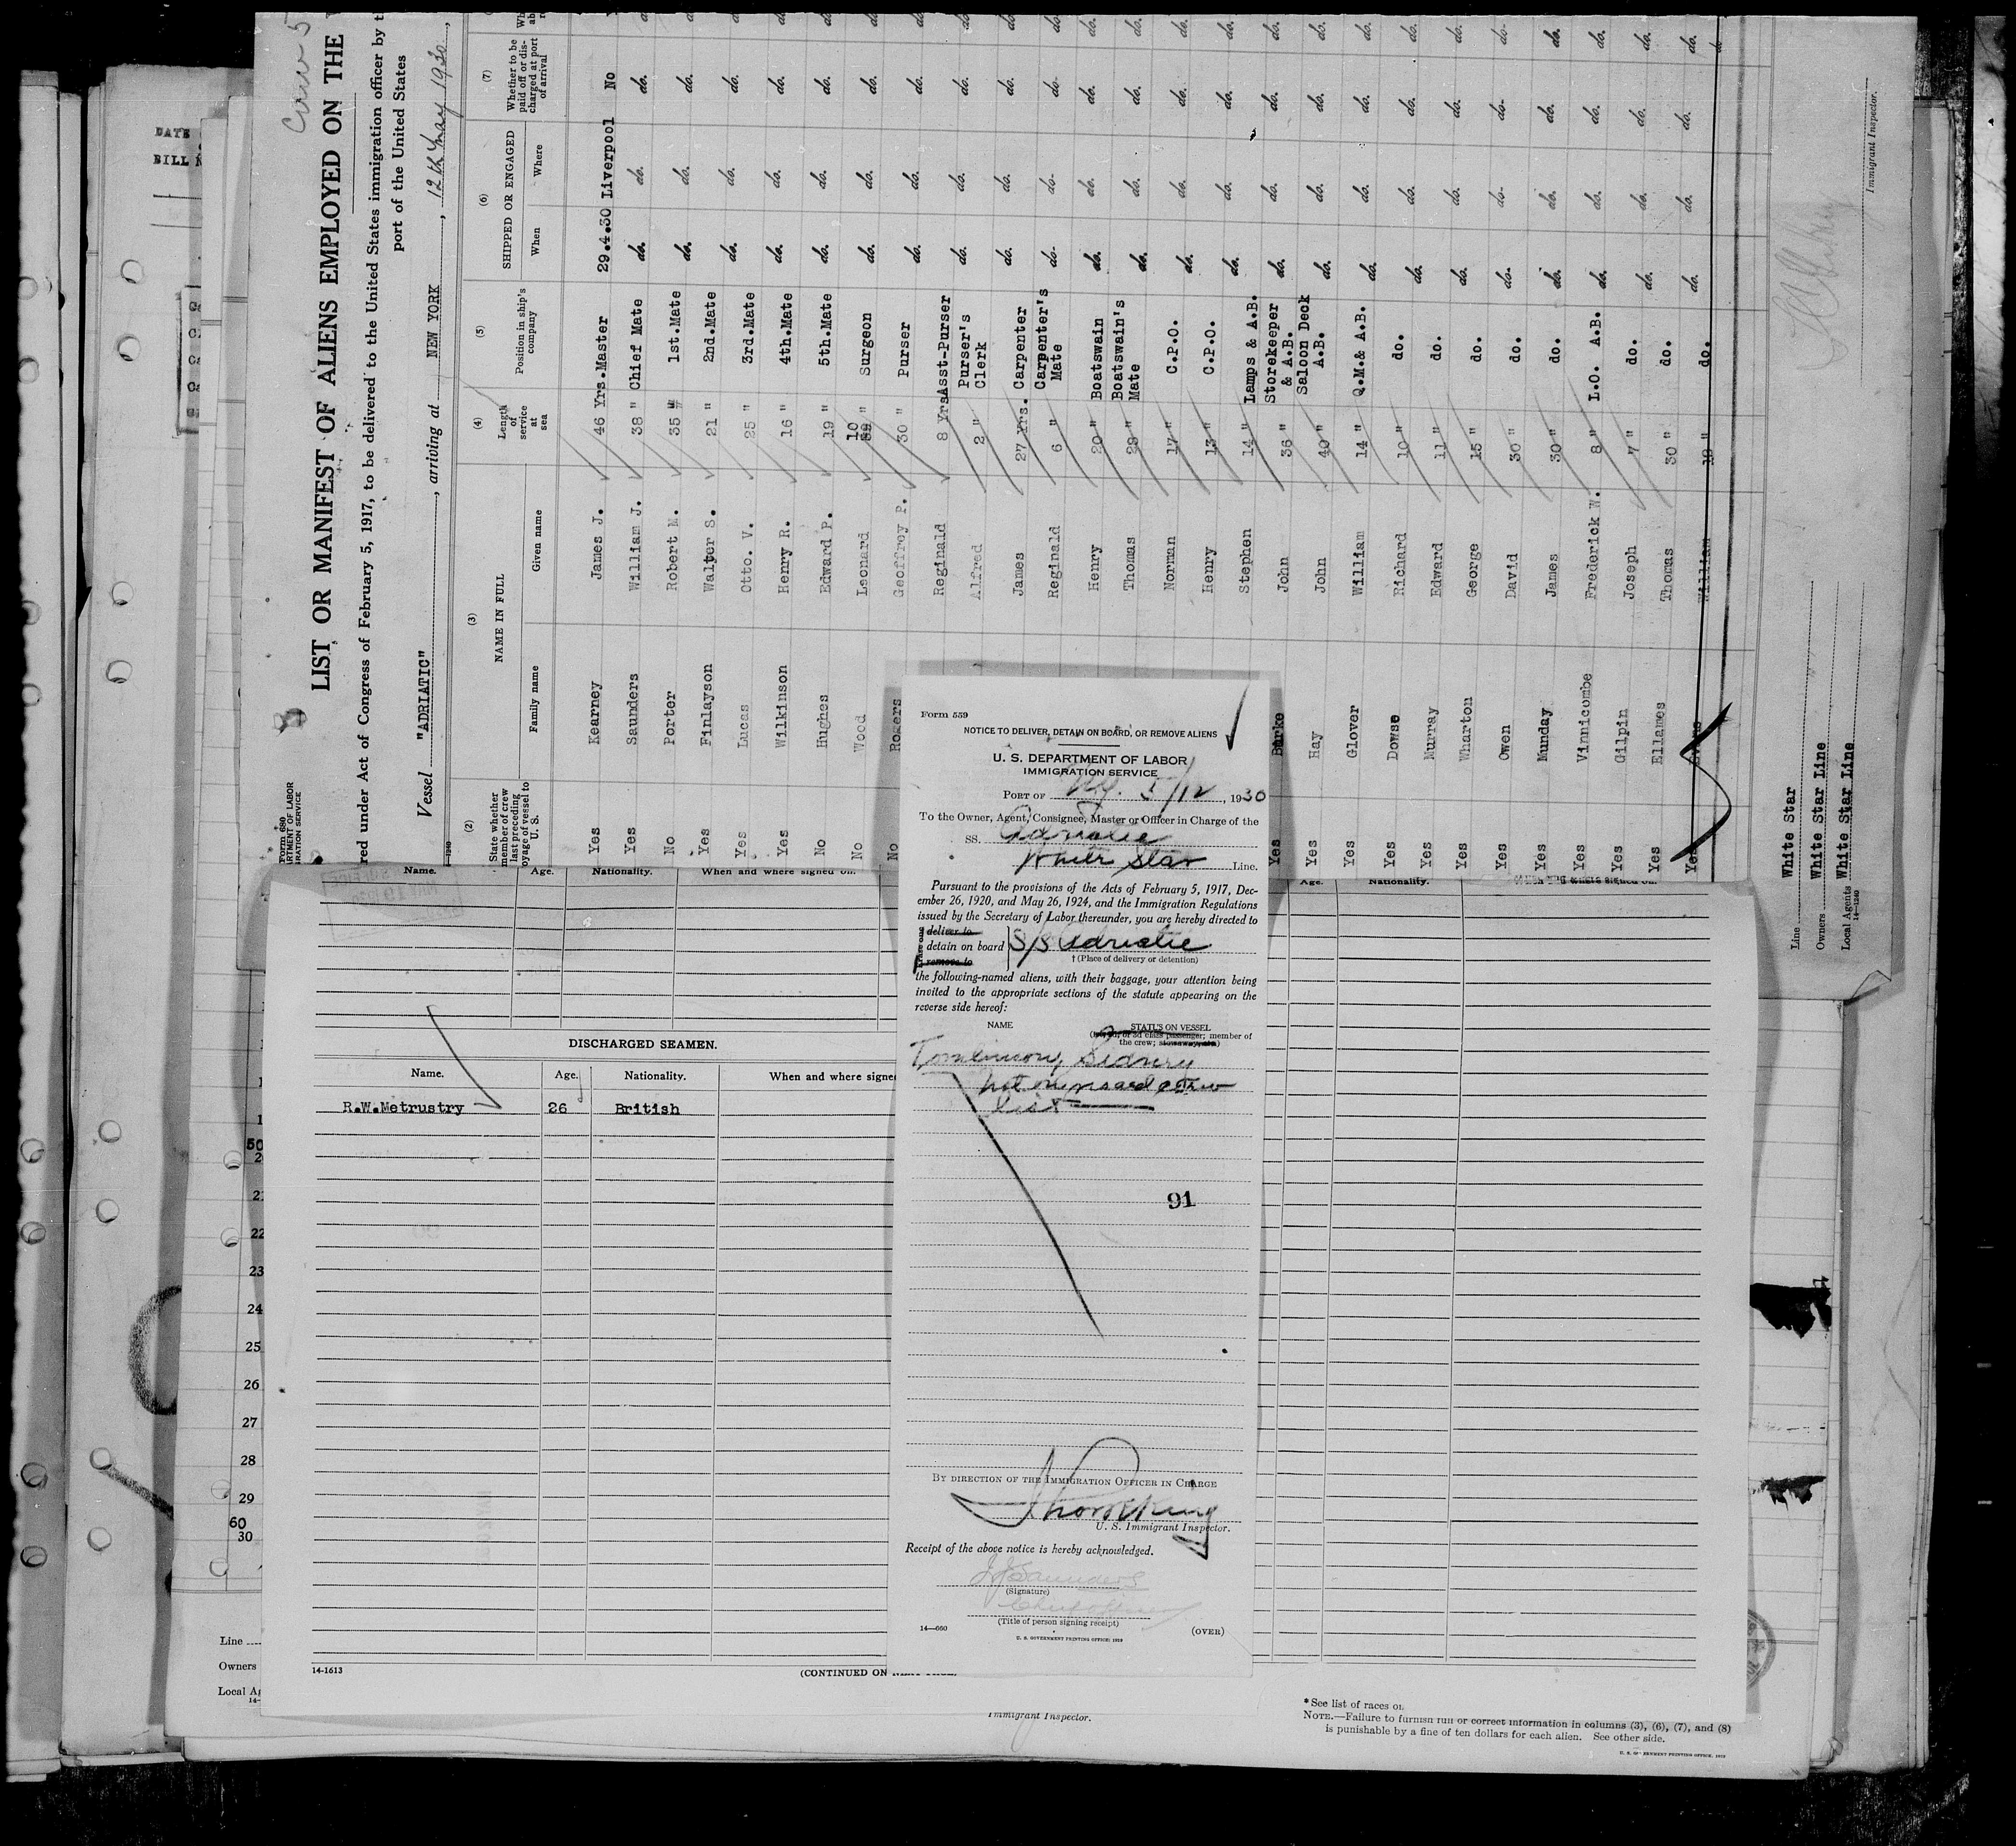 Form 680
LIST OR MANIFEST OF ALIENS EMPLOYED ON THE
red under Act of Congress of February 5, 1917, to be delivered to the United States immigration officer by t
port of the United States
Vessel "ADRIATIC", arriving at NEW YORK, 12th May 1930,
(2) (3) (4) (5) (6) (7)
State whether member of crew last preceding voyage of vessel to U. S.
NAME IN FULL
Family name Given name
Length of service at sea
Position in ship's company
SHIPPED OR ENGAGED
When Where
Whether to be paid off or discharged at port of arrival
Yes Kearney James J. 46 Yrs. Master 29.4.30 Liverpool No
Yes Saunders William J. 38 " Chief Mate do. do. do.
No Porter Robert M. 35 " 1st.Mate do. do. do.
Yes Finlayson Walter S. 21 " 2nd.Mate do. do. do.
Yes Lucas Otto. V. 25 " 3rd.Mate do. do. do.
Yes Wilkinson Henry R. 16 " 4th.Mate do. do. do.
No Hughes Edward P. 19 " 5th.Mate do. do. do.
No Wood Leonard 10 " Surgeon do. do. do.
No Rogers Geoffrey P. 30 " Purser do. do. do.
Reginald 8 Yrs Asst-Purser do. do. do.
Alfred 2 " Purser's Clerk do. do. do.
James 27 Yrs. Carpenter do. do. do.
Reginald 6 " Carpenter's Mate do. do. do.
Henry 20 " Boatswain do. do. do.
Thomas 28 " Boatswain's Mate do. do. do.
Norman 17 " C.P.O. do. do. do.
Henry 13 " C.P.O. do. do. do.
Stephen 14 " Lamps & A.B. do. do. do.
Yes Burke John 36 " Storekeeper & A.B. do. do. do.
Yes Hay John 40 " Saloon Deck A.B. do. do. do.
Yes Glover William 14 " Q.M.& A.B. do. do. do.
Yes Dowse Richard 10 " do. do. do. do.
Yes Murray Edward 11 " do. do. do. do.
Yes Wharton George 15 " do. do. do. do.
Yes Owen David 30 " do. do. do. do.
Yes Munday James 30 " do. do. do. do.
Yes Vinnicombe Frederick W. 8 " L.O. A.B. do. do. do.
Yes Gilpin Joseph 7 " do. do. do. do.
Yes Ellames Thomas 30 " do. do. do. do.
Yes William 19 " do. do. do. do.
Line White Star
Owners White Star Line
Local Agents White Star Line
14-1240
Immigrant Inspector.
DATE
BILL
Form 559
NOTICE TO DELIVER, DETAIN ON BOARD, OR REMOVE ALIENS
U. S. DEPARTMENT OF LABOR
IMMIGRATION SERVICE
PORT OF N.Y. 5/12, 1930
To the Owner, Agent, Consignee, Master or Officer in Charge of the
SS. Adriatic
White Star Line.
Pursuant to the provisions of the Acts of February 5, 1917, Dec-
ember 26, 1920, and May 26, 1924, and the Immigration Regulations
issued by the Secretary of Labor thereunder, you are hereby directed to
deliver to
detain on board S/S Adriatic
remove to
† (Place of delivery or detention)
the following-named aliens, with their baggage, your attention being
invited to the appropriate sections of the statute appearing on the
reverse side hereof:
NAME STATUS ON VESSEL
passenger; member of
the crew; stowaway,
Tomlinson, Sidney
not on visaed crew
list
91
BY DIRECTION OF THE IMMIGRATION OFFICER IN CHARGE
U. S. Immigrant Inspector.
Receipt of the above notice is hereby acknowledged.
Saunders
(Signature)
Chief Officer
(Title of person signing receipt)
14—660 (OVER)
U. S. GOVERNMENT PRINTING OFFICE: 1929
Name. Age. Nationality. When and where signed on.
Age. Nationality.
DISCHARGED SEAMEN.
Name. Age. Nationality. When and where signe
R.W.Metrustry 26 British
50
21
22
23
24
25
26
27
28
29
60
30
Line
Owners
Local A
14-1613
(CONTINUED ON
Immigrant Inspector.
* See list of races on
NOTE.—Failure to furnish full or correct information in columns (3), (6), (7), and (8)
is punishable by a fine of ten dollars for each alien. See other side.